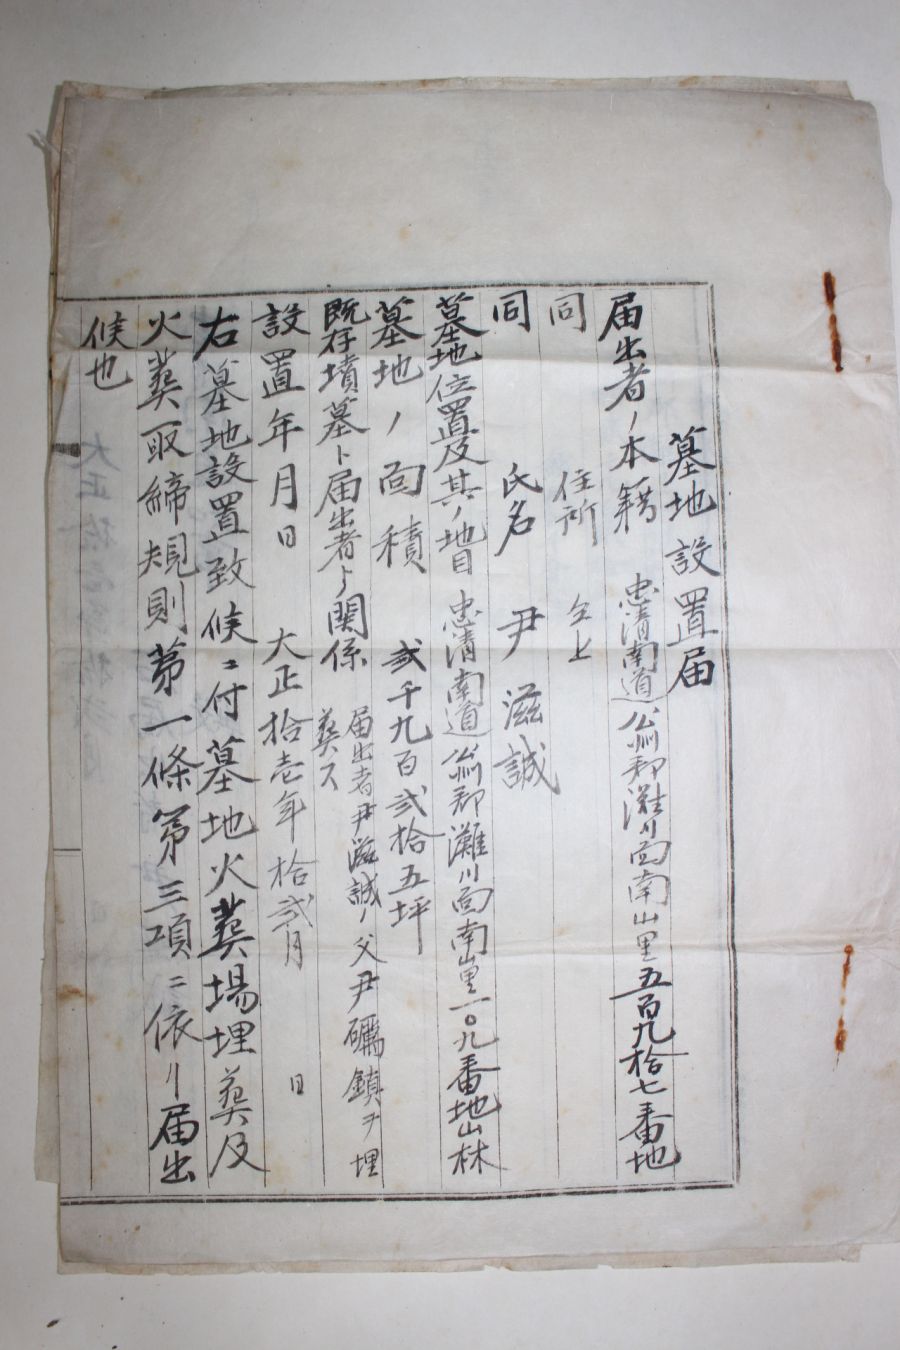 墓地設置届
届出者ノ本籍 忠清南道公州郡灘川面南山里五百九拾七番地
同 住所 仝上
同 氏名 尹滋誠
墓地位置及其ノ地目 忠清南道公州郡灘川面南山里一〇九番地山林
墓地ノ面積 弐千九百弐拾五坪
既存墳墓ト届出者トノ関係 届出者尹滋誠ノ父尹礪鎮ヲ埋
葬ス
設置年月日 大正拾壱年拾弐月 日
右墓地設置致候ニ付墓地火葬場埋葬及
火葬取締規則第一條第三項ニ依リ届出
候也